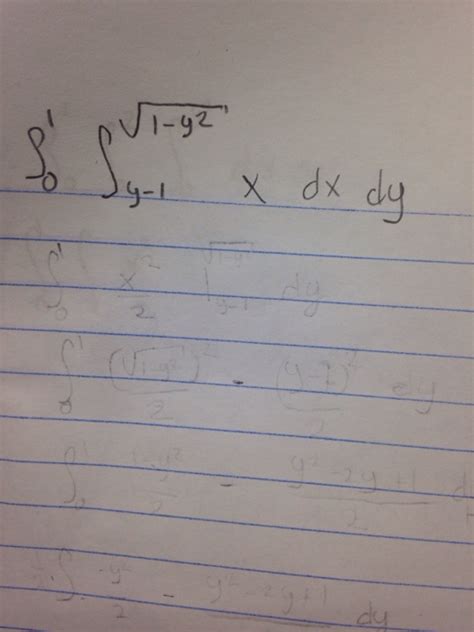 ∫₀¹ ∫_{y-1}^{√(1-y²)} x dx dy
∫₀¹ x²/2 |_{y-1}^{√(1-y²)} dy
∫₀¹ (√(1-y²))²/2 - (y-1)²/2 dy
∫₀¹ (1-y²)/2 - (y²-2y+1)/2 d
∫ -y²/2 - y²-2y+1 dy